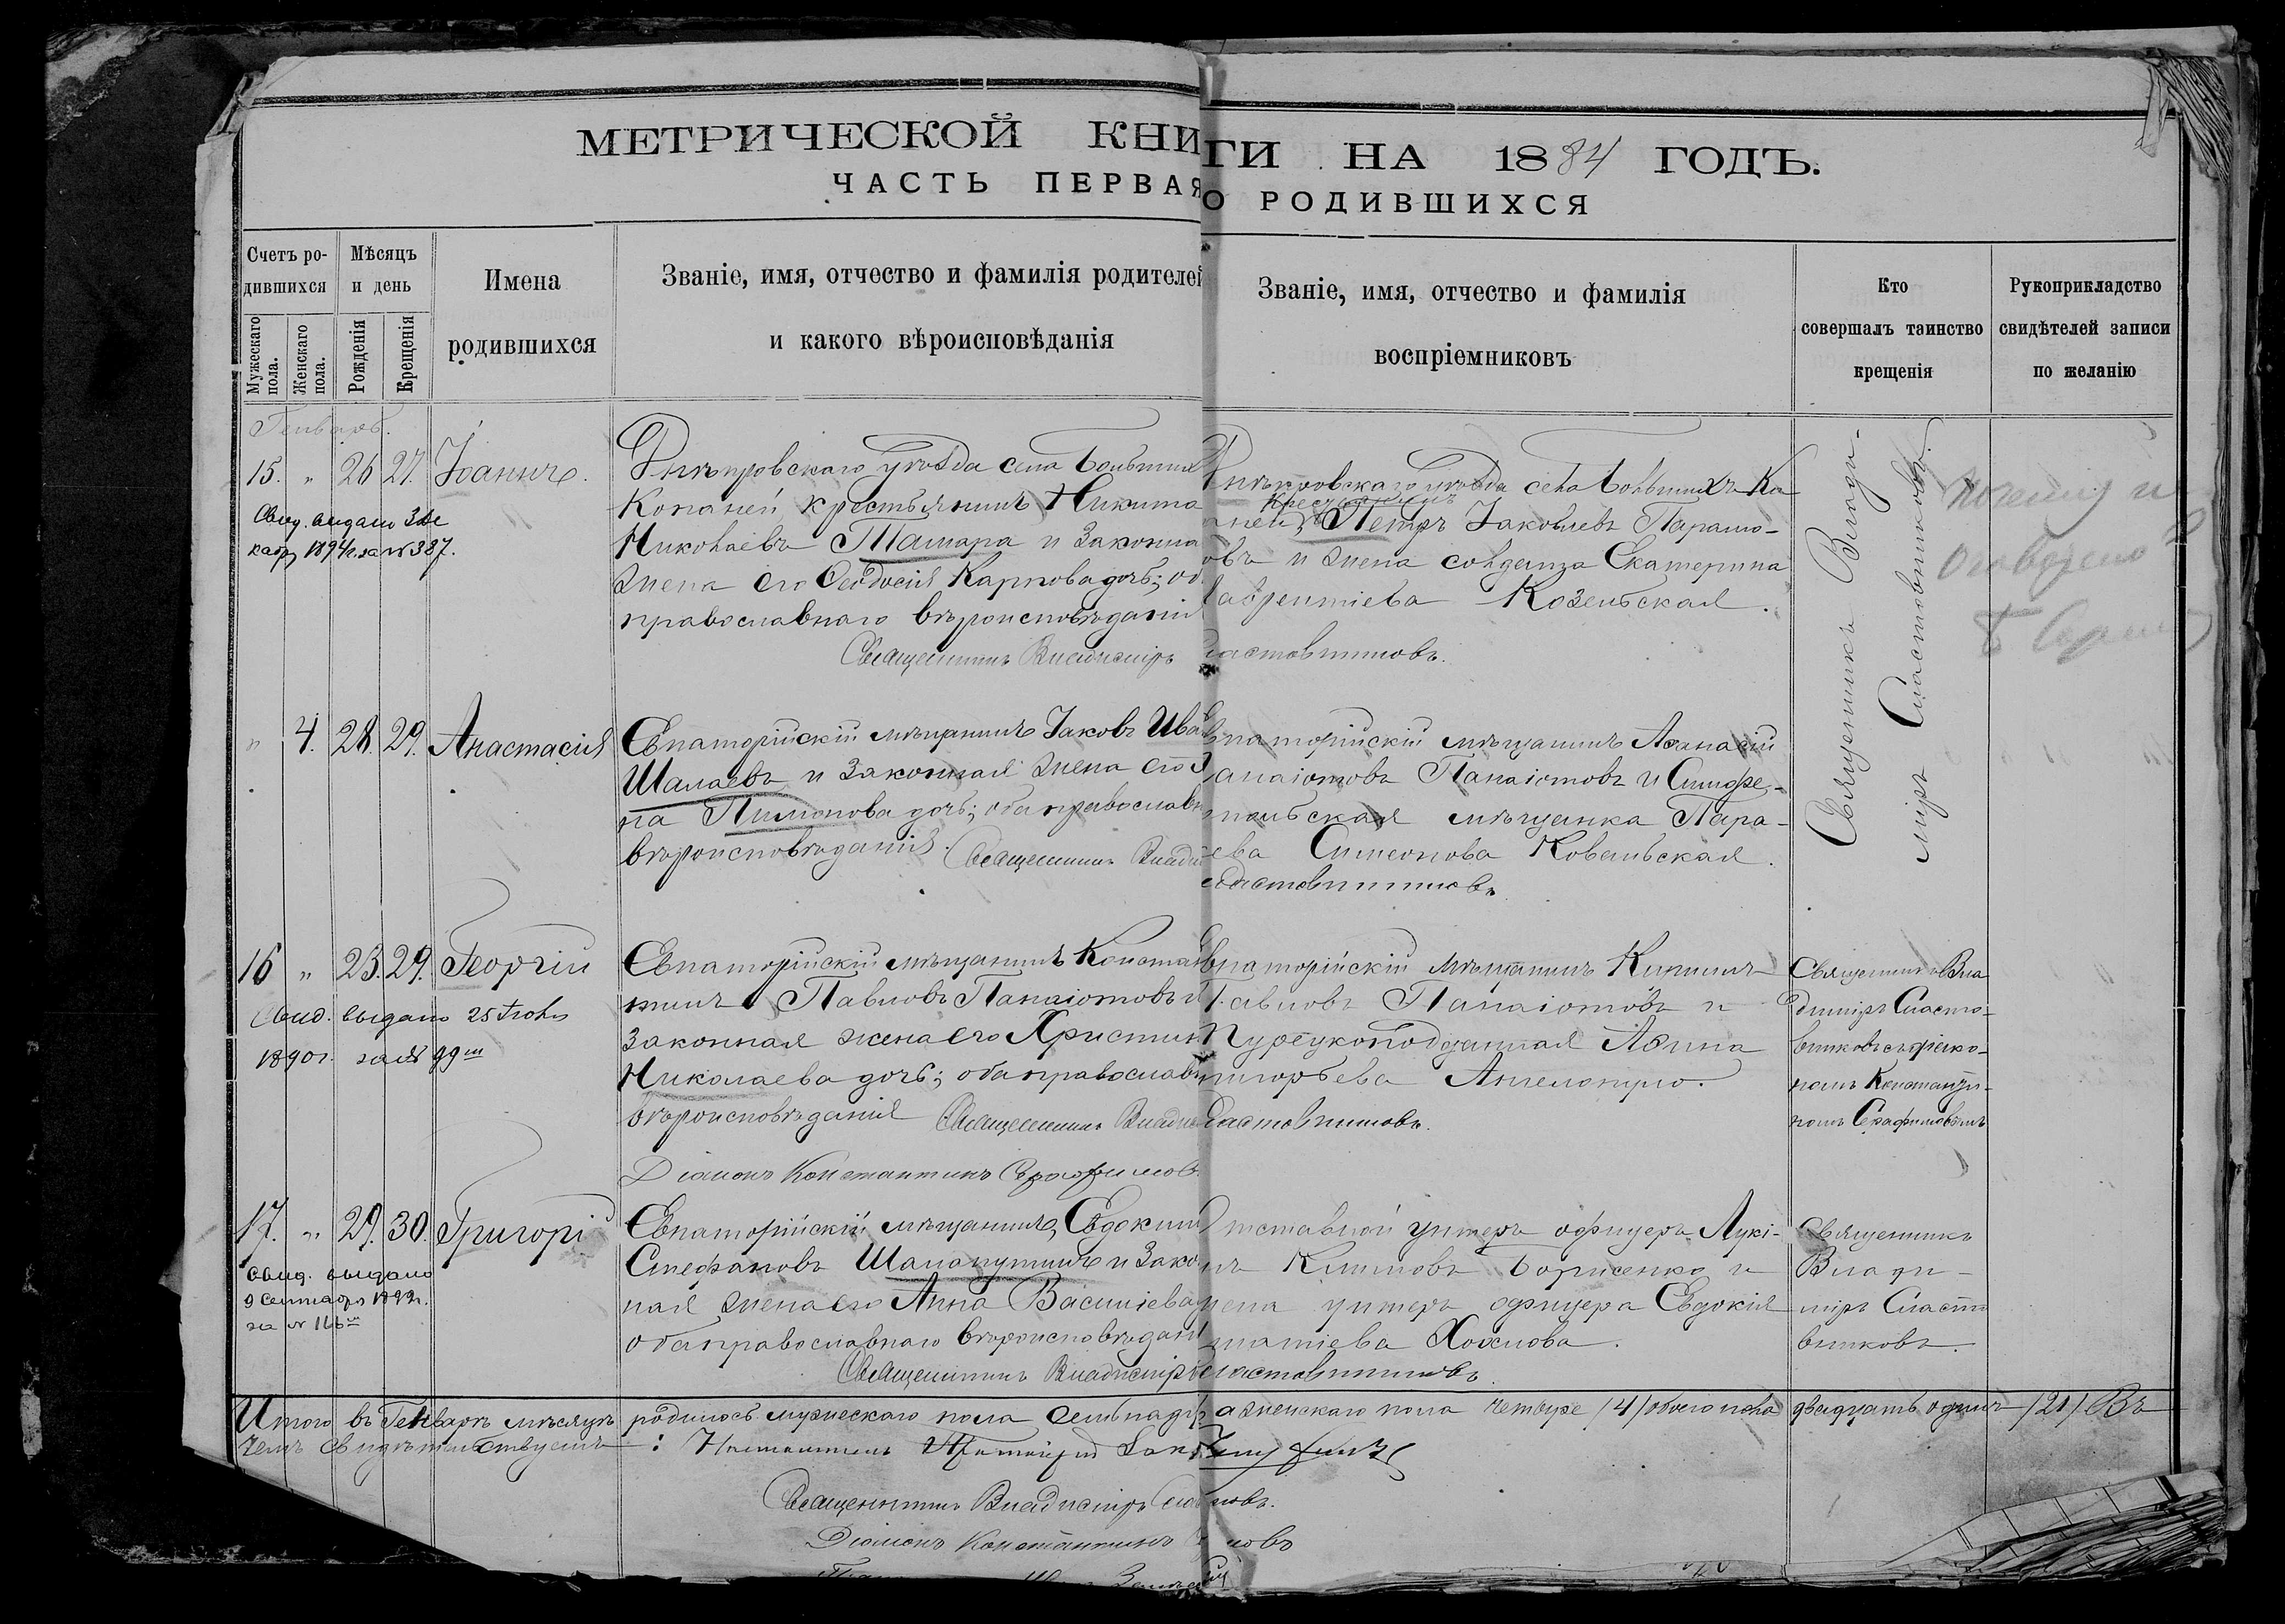 МЕТРИЧЕСКОЙ КНИГИ НА 1884 ГОДЪ.
ЧАСТЬ ПЕРВАЯ О РОДИВШИХСЯ
Счетъ родившихся
Мужескаго пола.
Женскаго пола.
Мѣсяцъ и день
Рожденія
Крещенія
Имена родившихся
Званіе, имя, отчество и фамилія родителей
и какого вѣроисповѣданія
Званіе, имя, отчество и фамилія
воспріемниковъ
Кто
совершалъ таинство
крещенія
Рукоприкладство
свидѣтелей записи
по желанію
Генварь.
15. " 26 27. Іоаннъ.
Свид. выдано 3 Де
кабр 1894 г. за № 387.
Днѣпровскаго уѣзда села Большихъ
Копаней крестьянинъ Никита
Николаевъ Тамара и законная
жена его Ѳеодосія Карпова дочь; оба
православнаго вѣроисповѣданія
Священникъ Владиміръ Сластовниковъ.
Днѣпровскаго уѣзда села Большихъ Ка
крестьянинъ
пней, Петръ Іаковлевъ Парамо-
овъ и жена солдатза Екатерина
Лаврентіева Козельская.
Священникъ Влади-
міръ Сластовниковъ.
" 4. 28. 29. Анастасія
Евпаторійскій мѣщанинъ Іаковъ Ива
Шалаевъ и законная жена его
на Пимонова дочь; оба православн
вѣроисповѣданія.
Священникъ Влади
Сластовниковъ
Евпаторійскій мѣщанинъ Аѳанасій
Панаіотовъ Панаіотовъ и Симфе-
польская мѣщанка Пара-
ева Симеонова Ковальская.
16 " 23. 29. Георгій
Свид. выдано 25 Іюля
1890 г. за № 99
Евпаторійскій мѣщанинъ Констан
тинъ Павловъ Панаіотовъ и
законная жена его Христин
Николаева дочь; оба православн
вѣроисповѣданія
Священникъ Влади Сластовниковъ.
Діаконъ Константинъ Серафимов
Евпаторійскій Мѣщанинъ Кириллъ
Павловъ Панаіотовъ и
Турецкоподданная Аѳина
Григорьева Ангелопуло.
Священникъ Вла
диміръ Сласто-
вниковъ съ діако-
номъ Константи-
номъ Серафимовымъ
17. " 29. 30. Григорій
Свид. выдано
9 Сентября 1892 г.
за № 166
Евпаторійскій мѣщанинъ, Евдоким
Стефановъ Шалапутинъ и зако
ная жена его Анна Василіева
оба православнаго вѣроисповѣдан
Священникъ Владиміръ Сластовниковъ.
Отставной унтеръ офицеръ Лукі-
нъ Климовъ Борисенко и
жена унтеръ офицера Евдокія
Игнатіева Хохлова.
Священникъ
Влади-
міръ Сласто
вниковъ.
Итого въ Генварѣ мѣсяцѣ родилось мужескаго пола семнадц а женскаго пола четыре /4/ обоего пола двадцать одинъ /21/ Въ
чемъ свидѣтельствуемъ:
Священникъ Владиміръ Сластовниковъ.
Діаконъ Константинъ